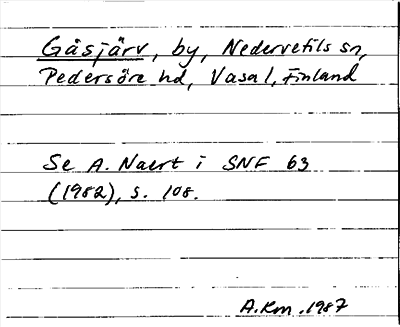 Gåsjärv, by, Nedervetils sn,
Pedersöre hd, Vasa l, Finland
Se A. Naert i SNF 63
(1982), s. 108.
A.Km. 1987